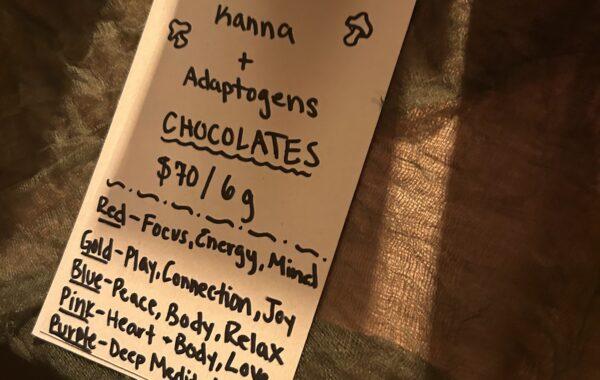 Kanna
+
Adaptogens
CHOCOLATES
$70/6g
Red-Focus, Energy, Mind
Gold-Play, Connection, Joy
Blue-Peace, Body, Relax
Pink-Heart + Body, Love
Purple-Deep